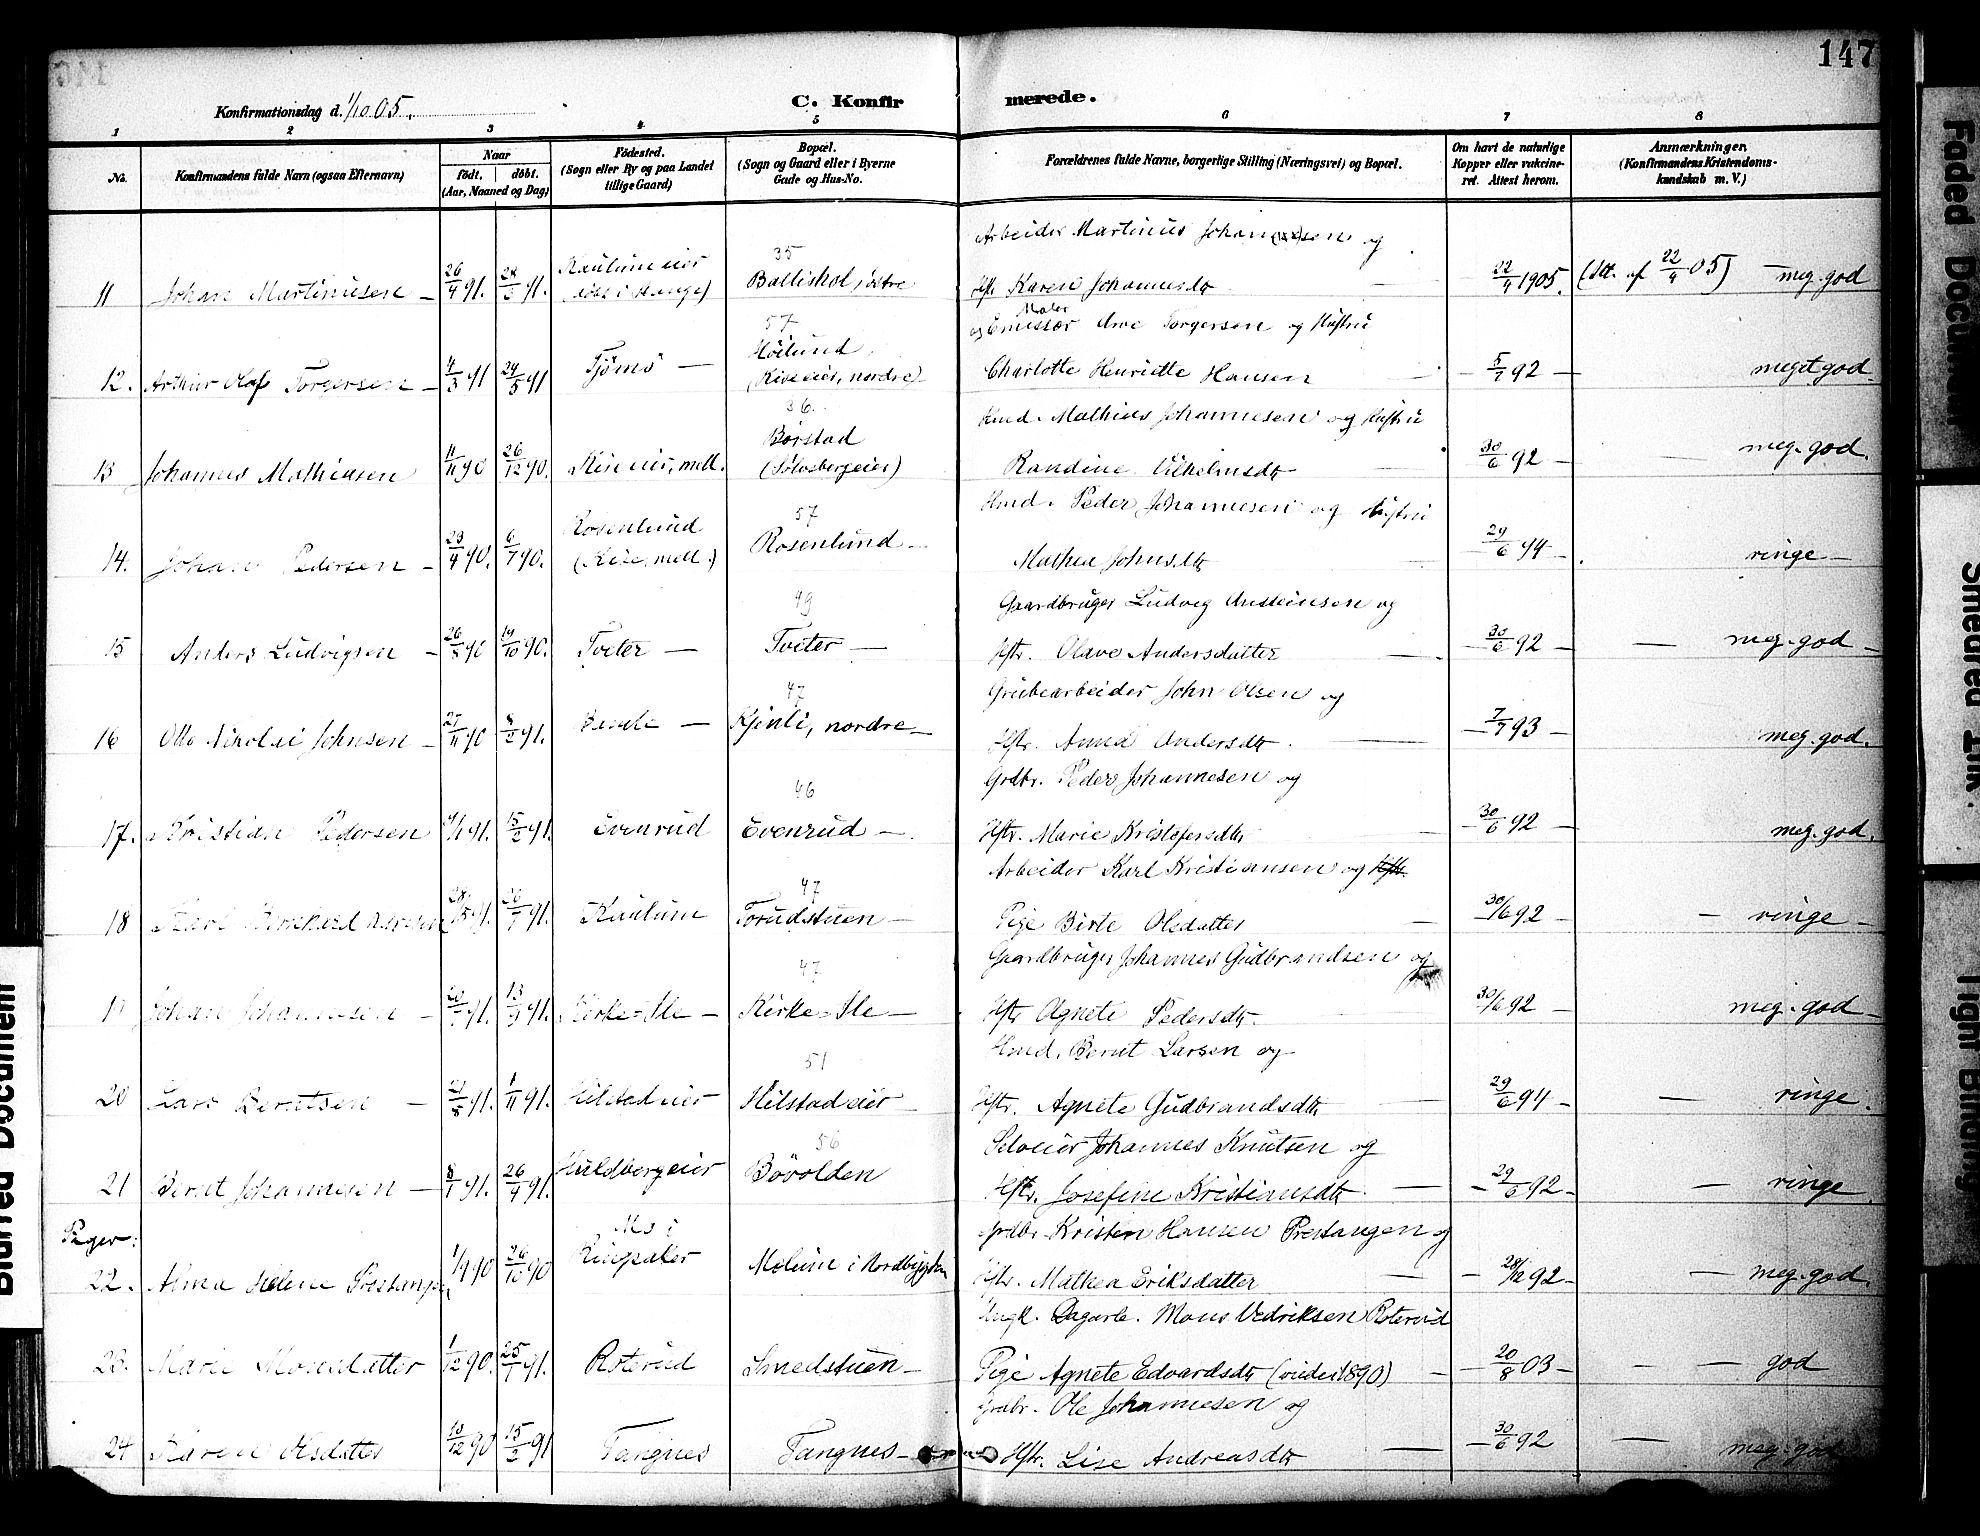 147
Konfirmationsdag d. 1/10 05.
C. Konfirmerede.
1 2 3 4 5 6 7 8
No.
Konfirmandens fulde Navn (ogsaa Efternavn)
Naar
født. døbt.
(Aar, Maaned og Dag)
Fødested.
(Sogn eller By og paa Landet
tillige Gaard)
Bopæl.
(Sogn og Gaard eller i Byerne
Gade og Hus-No.
Forældrenes fulde Navne, borgerlige Stilling (Næringsvei) og Bopæl.
Om havt de naturlige
Kopper eller vakcine-
ret. Attest herom.
Anmærkninger.
(Konfirmandens Kristendoms-
kundskab m. V.)
35
Arbeider Martinius Johannessen og
11 Johan Martinusen — 26/4 91. 91. Kaulum eier (døbt i Stange) Balliskol, østre
Hst. Karen Johannesdtr — 22/4 1905. (Att. af 22/4 05) — meg. god
57
Maler
og Emissær Arne Torgersen og Hustru
12. Arthur Olaf Torgersen — 4/3 91 24/5 91 Tjømø — Höilund, (Kise eier, nordre) —
Charlotte Henriette Hansen — 5/7 92 — meget god.
36.
Hmd. Mathias Johannesen og Hustru
13 Johannes Mathiasen 11/11 90 26/12 90. Kise eier, mell. Börstad (Sölvsbergeier)
Randine Vilhelmsdtr — 30/6 92 — meg. god.
57
Hmd. Peder Johannesen og Hustru
14. Johan Pedersen — 90. 6/7 90. Rosenlund (Kise, mell.) Rosenlund —
Mathea Johnsdtr — 29/6 94 — ringe —
49
Gaardbruger Ludvig Austeinsen og
15 Anders Ludvigsen — 26/8 90 19/10 90. Tveter — Tveter —
Hstr. Olave Andersdatter — 30/6 92 — — meg. god —
47
Grubearbeider John Olsen og
16 Otto Nikolai Johnsen — 27/11 90 8/2 91. — Kjenli, nordre —
Hstr. Anna Andersdtr. — 7/7 93 — meg. god.
46
Grdbr. Peder Johannesen og
17. Kristian Pedersen 91. 15/2 91. Evenrud Evenrud —
Hstr. Marie Kristofersdtr — 30/6 92 — meg. god.
47
Arbeider Karl Kristiansen og Hstr.
18 Karl Bernhard 91. 26/7 91. Kaulum Torudstuen —
Pige Birte Olsdatter — 30/6 92 — — ringe —
47
Gaardbruger Johannes Gudbrandsen og
19 Johan Johannesen — 91. 91. Kirke=Sle — Kirke=Sle —
Hstr Agnete Pedersdtr. — 30/6 92 — meg. god —
51
Hmd. Bernt Larsen og
20 Lars Berntsen — 91. 1/11 91. Hilstad eier Hilstad eier —
Hstr. Agnete Gudbrandsdtr — 29/6 94 — — ringe.
56
Selveier Johannes Knutsen og
21 Bernt Johannesen — 8/1 91. 26/4 91. Huldbergeier Bövolden
Hstr. Josefine Kristiansdtr. — 29/6 92 — — ringe
Piger:
Grdbr Kristen Hansen Prestangen og
22. Alma Helene Prestangen 90 26/10 90 Mo i Ringsaker Molum i Nordbygden
Hstr. Mathea Eriksdatter — 92 — — meg. god.
Ungk. Dagarb. Mons Vedriksen Roterud
23. Marie Monsdatter 1/12 90. 25/1 91. Roterud Smedstuen —
Pige Agnete Edvardsdtr (viede 1890) — 20/8 03 — — — god
Grdbr. Ole Johannesen og
24 Karen Olsdatter 10/12 90 15/2 91 Tangnes Tangnes —
Hstr. Lise Andreasdtr — 30/6 92 — meg. god
Faded Document
Smeared Ink.
Tight Binding
Blurred Document